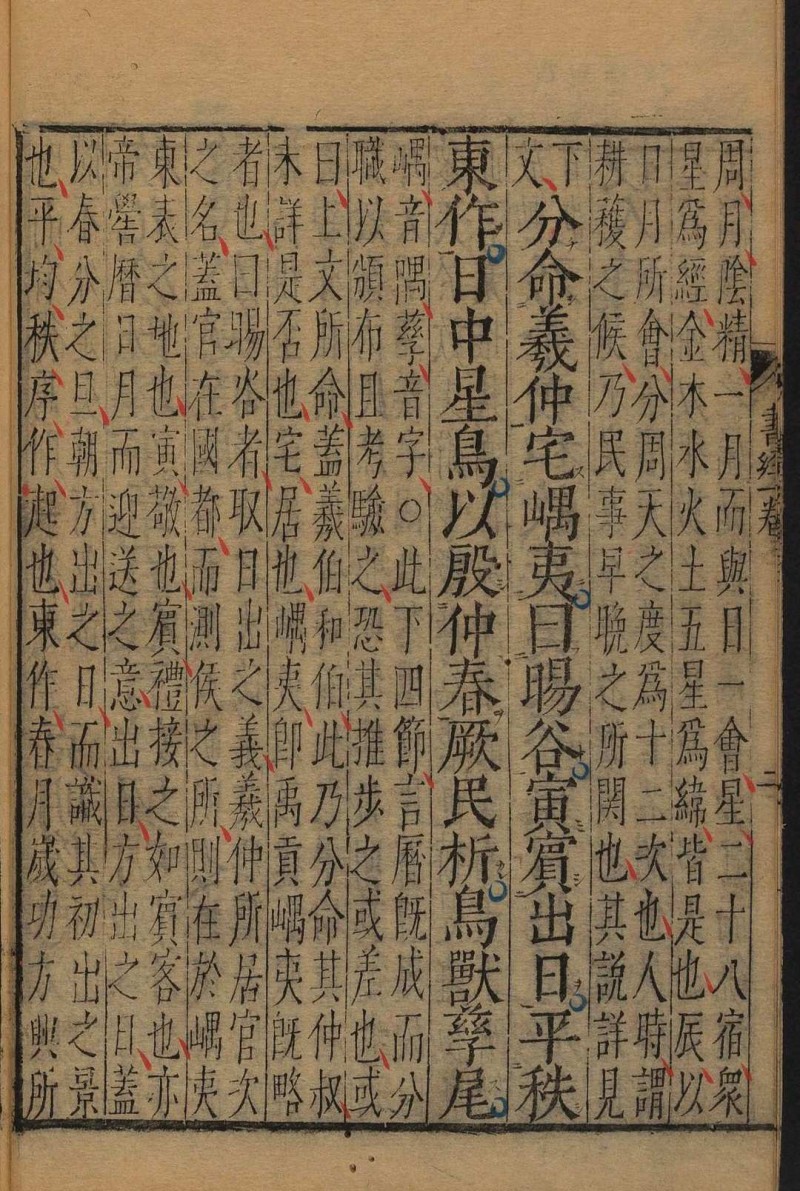 周月陰精一月而與日一會星二十八宿衆
星爲經金木水火土五星爲緯皆是也辰以
日月所會分周天之度爲十二次也人時謂
耕穫之候乃民事早晚之所関也其説詳見
下
文
分命羲仲宅嵎夷曰暘谷寅賓出日平秩
東作日中星鳥以殷仲春厥民析鳥獸孳尾
嵎音隅孳音字○此下四節言曆既成而分
職以頒布且考驗之恐其推步之或差也或
曰上文所命蓋羲伯和伯此乃分命其仲叔
未詳是否也宅居也嵎夷卽禹貢嵎夷既略
者也曰暘谷者取日出之義羲仲所居官次
之名蓋官在國都而測候之所則在於嵎夷
東表之地也寅敬也賓禮接之如賓客也亦
帝嚳曆日月而迎送之意出日方出之日蓋
以春分之旦朝方出之日而識其初出之景
也平均秩序作起也東作春月歲功方興所
書經一卷
二